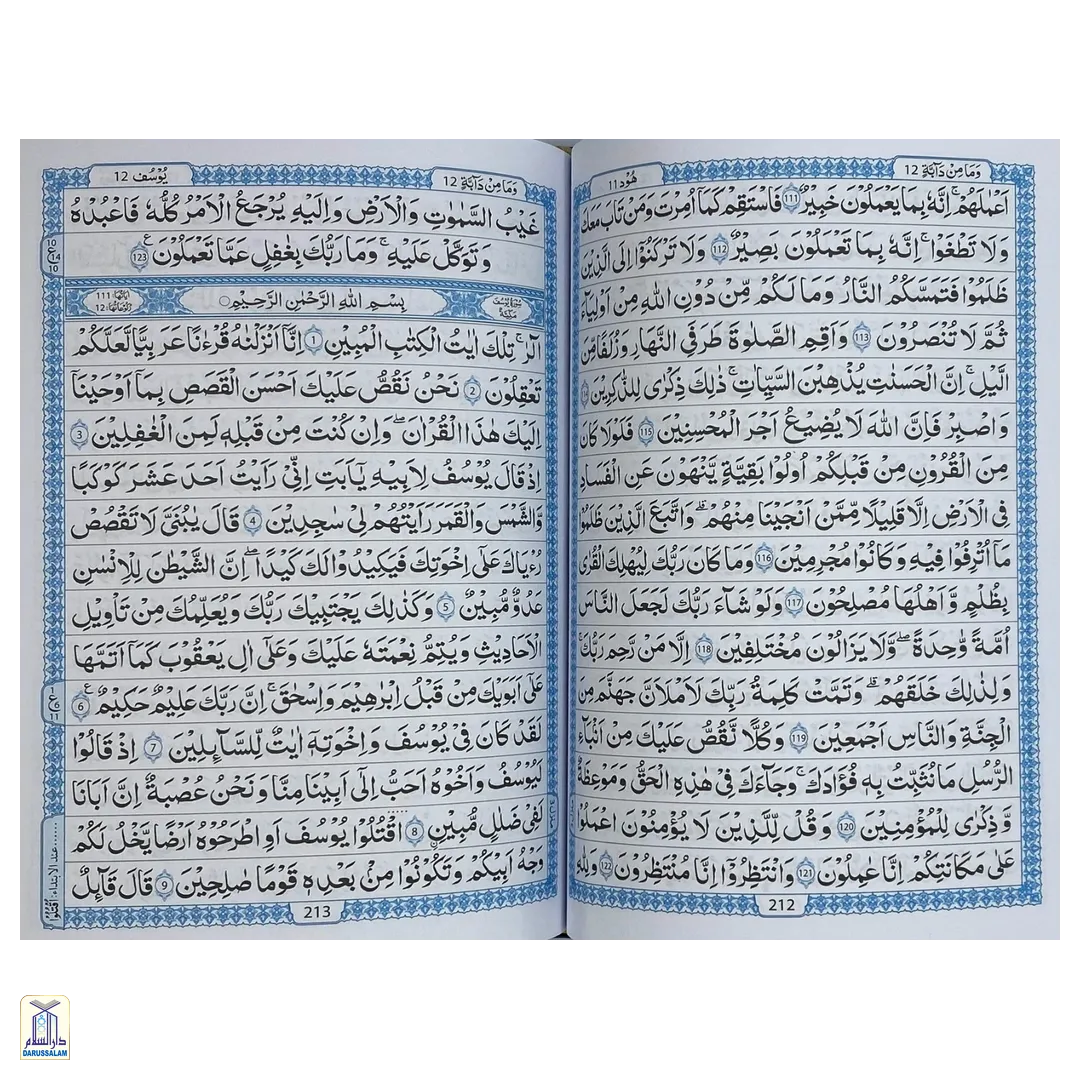 وَمَا مِنْ دَآبَّةٍ 12
هُوْد 11
اَعْمَالَهُمْ ؕ اِنَّهٗ بِمَا يَعْمَلُوْنَ خَبِيْرٌ 111 فَاسْتَقِمْ كَمَاۤ اُمِرْتَ وَمَنْ تَابَ مَعَكَ
وَلَا تَطْغَوْا ؕ اِنَّهٗ بِمَا تَعْمَلُوْنَ بَصِيْرٌ 112 وَلَا تَرْكَنُوْۤا اِلَى الَّذِيْنَ
ظَلَمُوْا فَتَمَسَّكُمُ النَّارُ وَمَا لَكُمْ مِّنْ دُوْنِ اللّٰهِ مِنْ اَوْلِيَآءَ
ثُمَّ لَا تُنْصَرُوْنَ 113 وَاَقِمِ الصَّلٰوةَ طَرَفَيِ النَّهَارِ وَزُلَفًا مِّنَ
الَّيْلِ ؕ اِنَّ الْحَسَنٰتِ يُذْهِبْنَ السَّيِّاٰتِ ؕ ذٰلِكَ ذِكْرٰى لِلذّٰكِرِيْنَ 114
وَاصْبِرْ فَاِنَّ اللّٰهَ لَا يُضِيْعُ اَجْرَ الْمُحْسِنِيْنَ 115 فَلَوْلَا كَانَ
مِنَ الْقُرُوْنِ مِنْ قَبْلِكُمْ اُولُوْا بَقِيَّةٍ يَّنْهَوْنَ عَنِ الْفَسَادِ
فِي الْاَرْضِ اِلَّا قَلِيْلًا مِّمَّنْ اَنْجَيْنَا مِنْهُمْ ۚ وَاتَّبَعَ الَّذِيْنَ ظَلَمُوْا
مَاۤ اُتْرِفُوْا فِيْهِ وَكَانُوْا مُجْرِمِيْنَ 116 وَمَا كَانَ رَبُّكَ لِيُهْلِكَ الْقُرٰى
بِظُلْمٍ وَّاَهْلُهَا مُصْلِحُوْنَ 117 وَلَوْ شَآءَ رَبُّكَ لَجَعَلَ النَّاسَ
اُمَّةً وَّاحِدَةً ۖ وَّلَا يَزَالُوْنَ مُخْتَلِفِيْنَ 118 اِلَّا مَنْ رَّحِمَ رَبُّكَ ؕ
وَلِذٰلِكَ خَلَقَهُمْ ؕ وَتَمَّتْ كَلِمَةُ رَبِّكَ لَاَمْلَاَنَّ جَهَنَّمَ مِنَ
الْجِنَّةِ وَالنَّاسِ اَجْمَعِيْنَ 119 وَكُلًّا نَّقُصُّ عَلَيْكَ مِنْ اَنْۢبَآءِ
الرُّسُلِ مَا نُثَبِّتُ بِهٖ فُؤَادَكَ ؕ وَجَآءَكَ فِيْ هٰذِهِ الْحَقُّ وَمَوْعِظَةٌ
وَّذِكْرٰى لِلْمُؤْمِنِيْنَ 120 وَقُلْ لِّلَّذِيْنَ لَا يُؤْمِنُوْنَ اعْمَلُوْا
عَلٰى مَكَانَتِكُمْ اِنَّا عٰمِلُوْنَ 121 وَانْتَظِرُوْۤا اِنَّا مُنْتَظِرُوْنَ 122 وَلِلّٰهِ
212
وَمَا مِنْ دَآبَّةٍ 12
يُوْسُف 12
غَيْبُ السَّمٰوٰتِ وَالْاَرْضِ وَاِلَيْهِ يُرْجَعُ الْاَمْرُ كُلُّهٗ فَاعْبُدْهُ
وَتَوَكَّلْ عَلَيْهِ ؕ وَمَا رَبُّكَ بِغٰفِلٍ عَمَّا تَعْمَلُوْنَ 123 ع
10
ع 14
10
سُوْرَةُ يُوْسُفَ مَكِّيَّةٌ
بِسْمِ اللّٰهِ الرَّحْمٰنِ الرَّحِيْمِ
اٰيَاتُهَا: 111
رُكُوْعَاتُهَا: 12
الٓرٰ ۚ تِلْكَ اٰيٰتُ الْكِتٰبِ الْمُبِيْنِ 1 اِنَّاۤ اَنْزَلْنٰهُ قُرْءٰنًا عَرَبِيًّا لَّعَلَّكُمْ
تَعْقِلُوْنَ 2 نَحْنُ نَقُصُّ عَلَيْكَ اَحْسَنَ الْقَصَصِ بِمَاۤ اَوْحَيْنَاۤ
اِلَيْكَ هٰذَا الْقُرْاٰنَ ۖ وَاِنْ كُنْتَ مِنْ قَبْلِهٖ لَمِنَ الْغٰفِلِيْنَ 3
اِذْ قَالَ يُوْسُفُ لِاَبِيْهِ يٰۤاَبَتِ اِنِّيْ رَاَيْتُ اَحَدَ عَشَرَ كَوْكَبًا
وَّالشَّمْسَ وَالْقَمَرَ رَاَيْتُهُمْ لِيْ سٰجِدِيْنَ 4 قَالَ يٰبُنَيَّ لَا تَقْصُصْ
رُءْيَاكَ عَلٰۤى اِخْوَتِكَ فَيَكِيْدُوْا لَكَ كَيْدًا ؕ اِنَّ الشَّيْطٰنَ لِلْاِنْسٰنِ
عَدُوٌّ مُّبِيْنٌ 5 وَكَذٰلِكَ يَجْتَبِيْكَ رَبُّكَ وَيُعَلِّمُكَ مِنْ تَاْوِيْلِ
الْاَحَادِيْثِ وَيُتِمُّ نِعْمَتَهٗ عَلَيْكَ وَعَلٰۤى اٰلِ يَعْقُوْبَ كَمَاۤ اَتَمَّهَا
عَلٰۤى اَبَوَيْكَ مِنْ قَبْلُ اِبْرٰهِيْمَ وَاِسْحٰقَ ؕ اِنَّ رَبَّكَ عَلِيْمٌ حَكِيْمٌ 6 ع
1
ع 6
11
لَقَدْ كَانَ فِيْ يُوْسُفَ وَاِخْوَتِهٖۤ اٰيٰتٌ لِّلسَّآئِلِيْنَ 7 اِذْ قَالُوْا
لَيُوْسُفُ وَاَخُوْهُ اَحَبُّ اِلٰۤى اَبِيْنَا مِنَّا وَنَحْنُ عُصْبَةٌ ؕ اِنَّ اَبَانَا
لَفِيْ ضَلٰلٍ مُّبِيْنٍ 8 اقْتُلُوْا يُوْسُفَ اَوِ اطْرَحُوْهُ اَرْضًا يَّخْلُ لَكُمْ
وَجْهُ اَبِيْكُمْ وَتَكُوْنُوْا مِنْۢ بَعْدِهٖ قَوْمًا صٰلِحِيْنَ 9 قَالَ قَآئِلٌ
عند الابتداء: اُقْتُلُوْا
213
دار السلام
DARUSSALAM